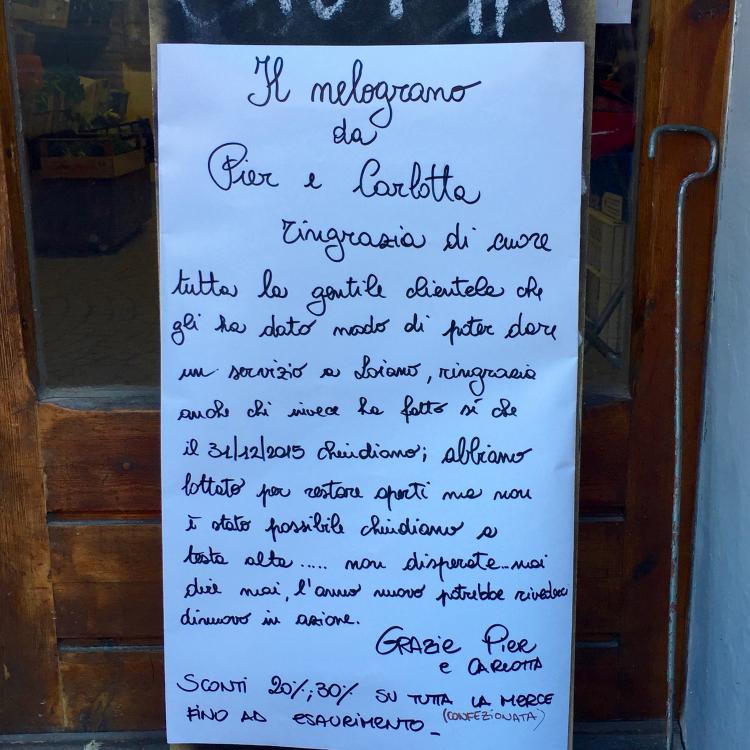 Il melograno
da
Pier e Carlotta
ringrazia di cuore
tutta la gentile clientela che
gli ha dato modo di poter dare
un servizio a Loiano, ringrazia
anche chi invece ha fatto sì che
il 31/12/2015 chiudiamo; abbiamo
lottato per restare aperti ma non
è stato possibile chiudiamo a
testa alta ..... non disperate...mai
dire mai, l'anno nuovo potrebbe rivederci
dinuovo in azione.
GRAZIE PIER
e CARLOTTA
SCONTI 20%; 30% SU TUTTA LA MERCE
(CONFEZIONATA)
FINO AD ESAURIMENTO_